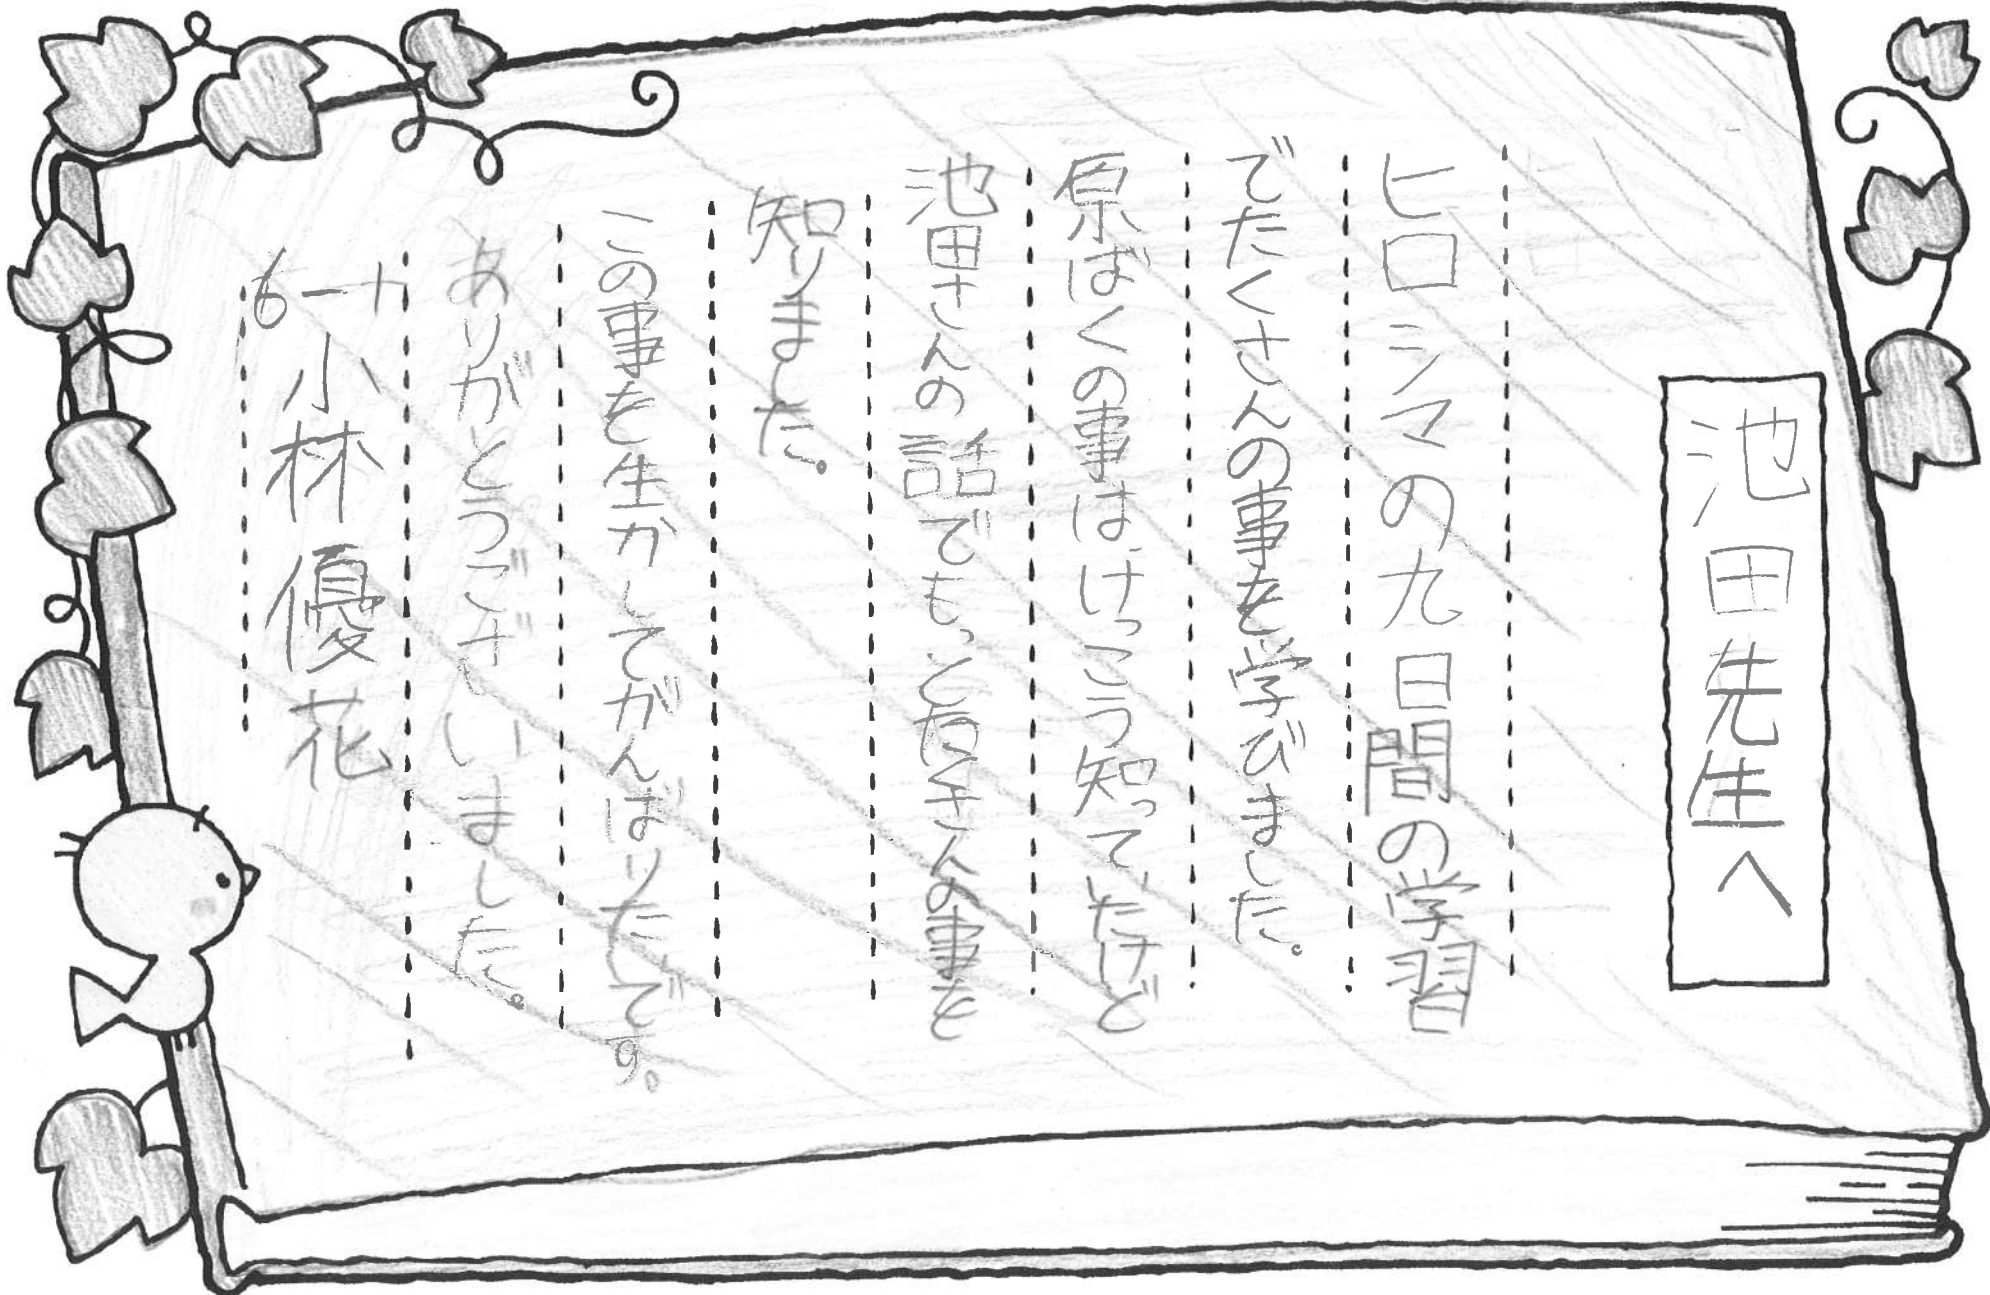 池田先生へ
ヒロシマの九日間の学習
でたくさんの事を学びました。
原ばくの事はけっこう知っていたけど
池田さんの話でもっとたくさんの事を
知りました。
この事を生かしてがんばりたいです。
ありがとうございました。
小林優花